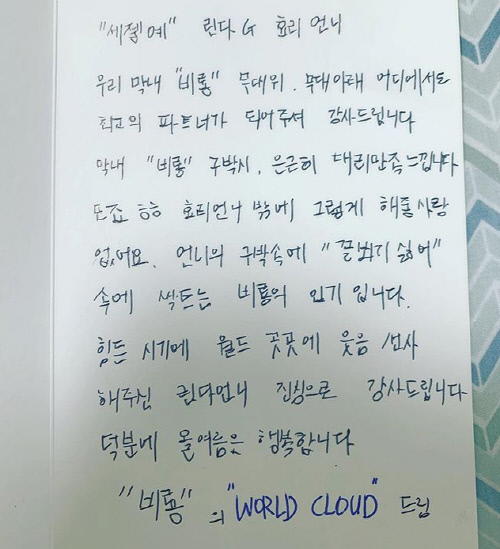 "세젤예" 린다G 효리 언니
우리 막내 "비룡" 무대위. 무대아래 어디에서도
최고의 파트너가 되어주셔 감사드립니다
막내 "비룡" 구박시, 은근히 대리만족느낍니다
또죠 ㅎㅎ 효리언니 밖에 그렇게 해줄 사람
없어요. 언니의 구박속에 "꼴뵈기 싫어"
속에 싹트는 비룡의 인기 입니다.
힘든 시기에 월드 곳곳에 웃음 선사
해주신 린다언니 진심으로 감사드립니다
덕분에 올여름은 행복합니다
"비룡"의 "WORLD CLOUD" 드림